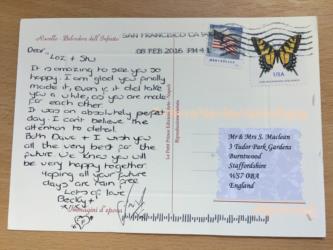 Ravello - Belvedere dell'Infinito
SAN FRANCISCO CA
08 FEB 2016 PM 4 L
USA
Dear "Loz + Shu
It is amazing to see you so
happy. I am glad you finally
made it, even if it did take
you a while, as you are made
for each other.
It was an absolutely perfect
day. I can't believe the
attention to detail.
Both Dave + I wish you
all the very best for the
future. We know you will
be very happy together.
Hoping all your future
days are rain free
Lots of love
Becky
Immagini d'epoca
Mr & Mrs S. Maclein
3 Tudor Park Gardens
Burntwood
Staffordshire
WS7 0BA
England